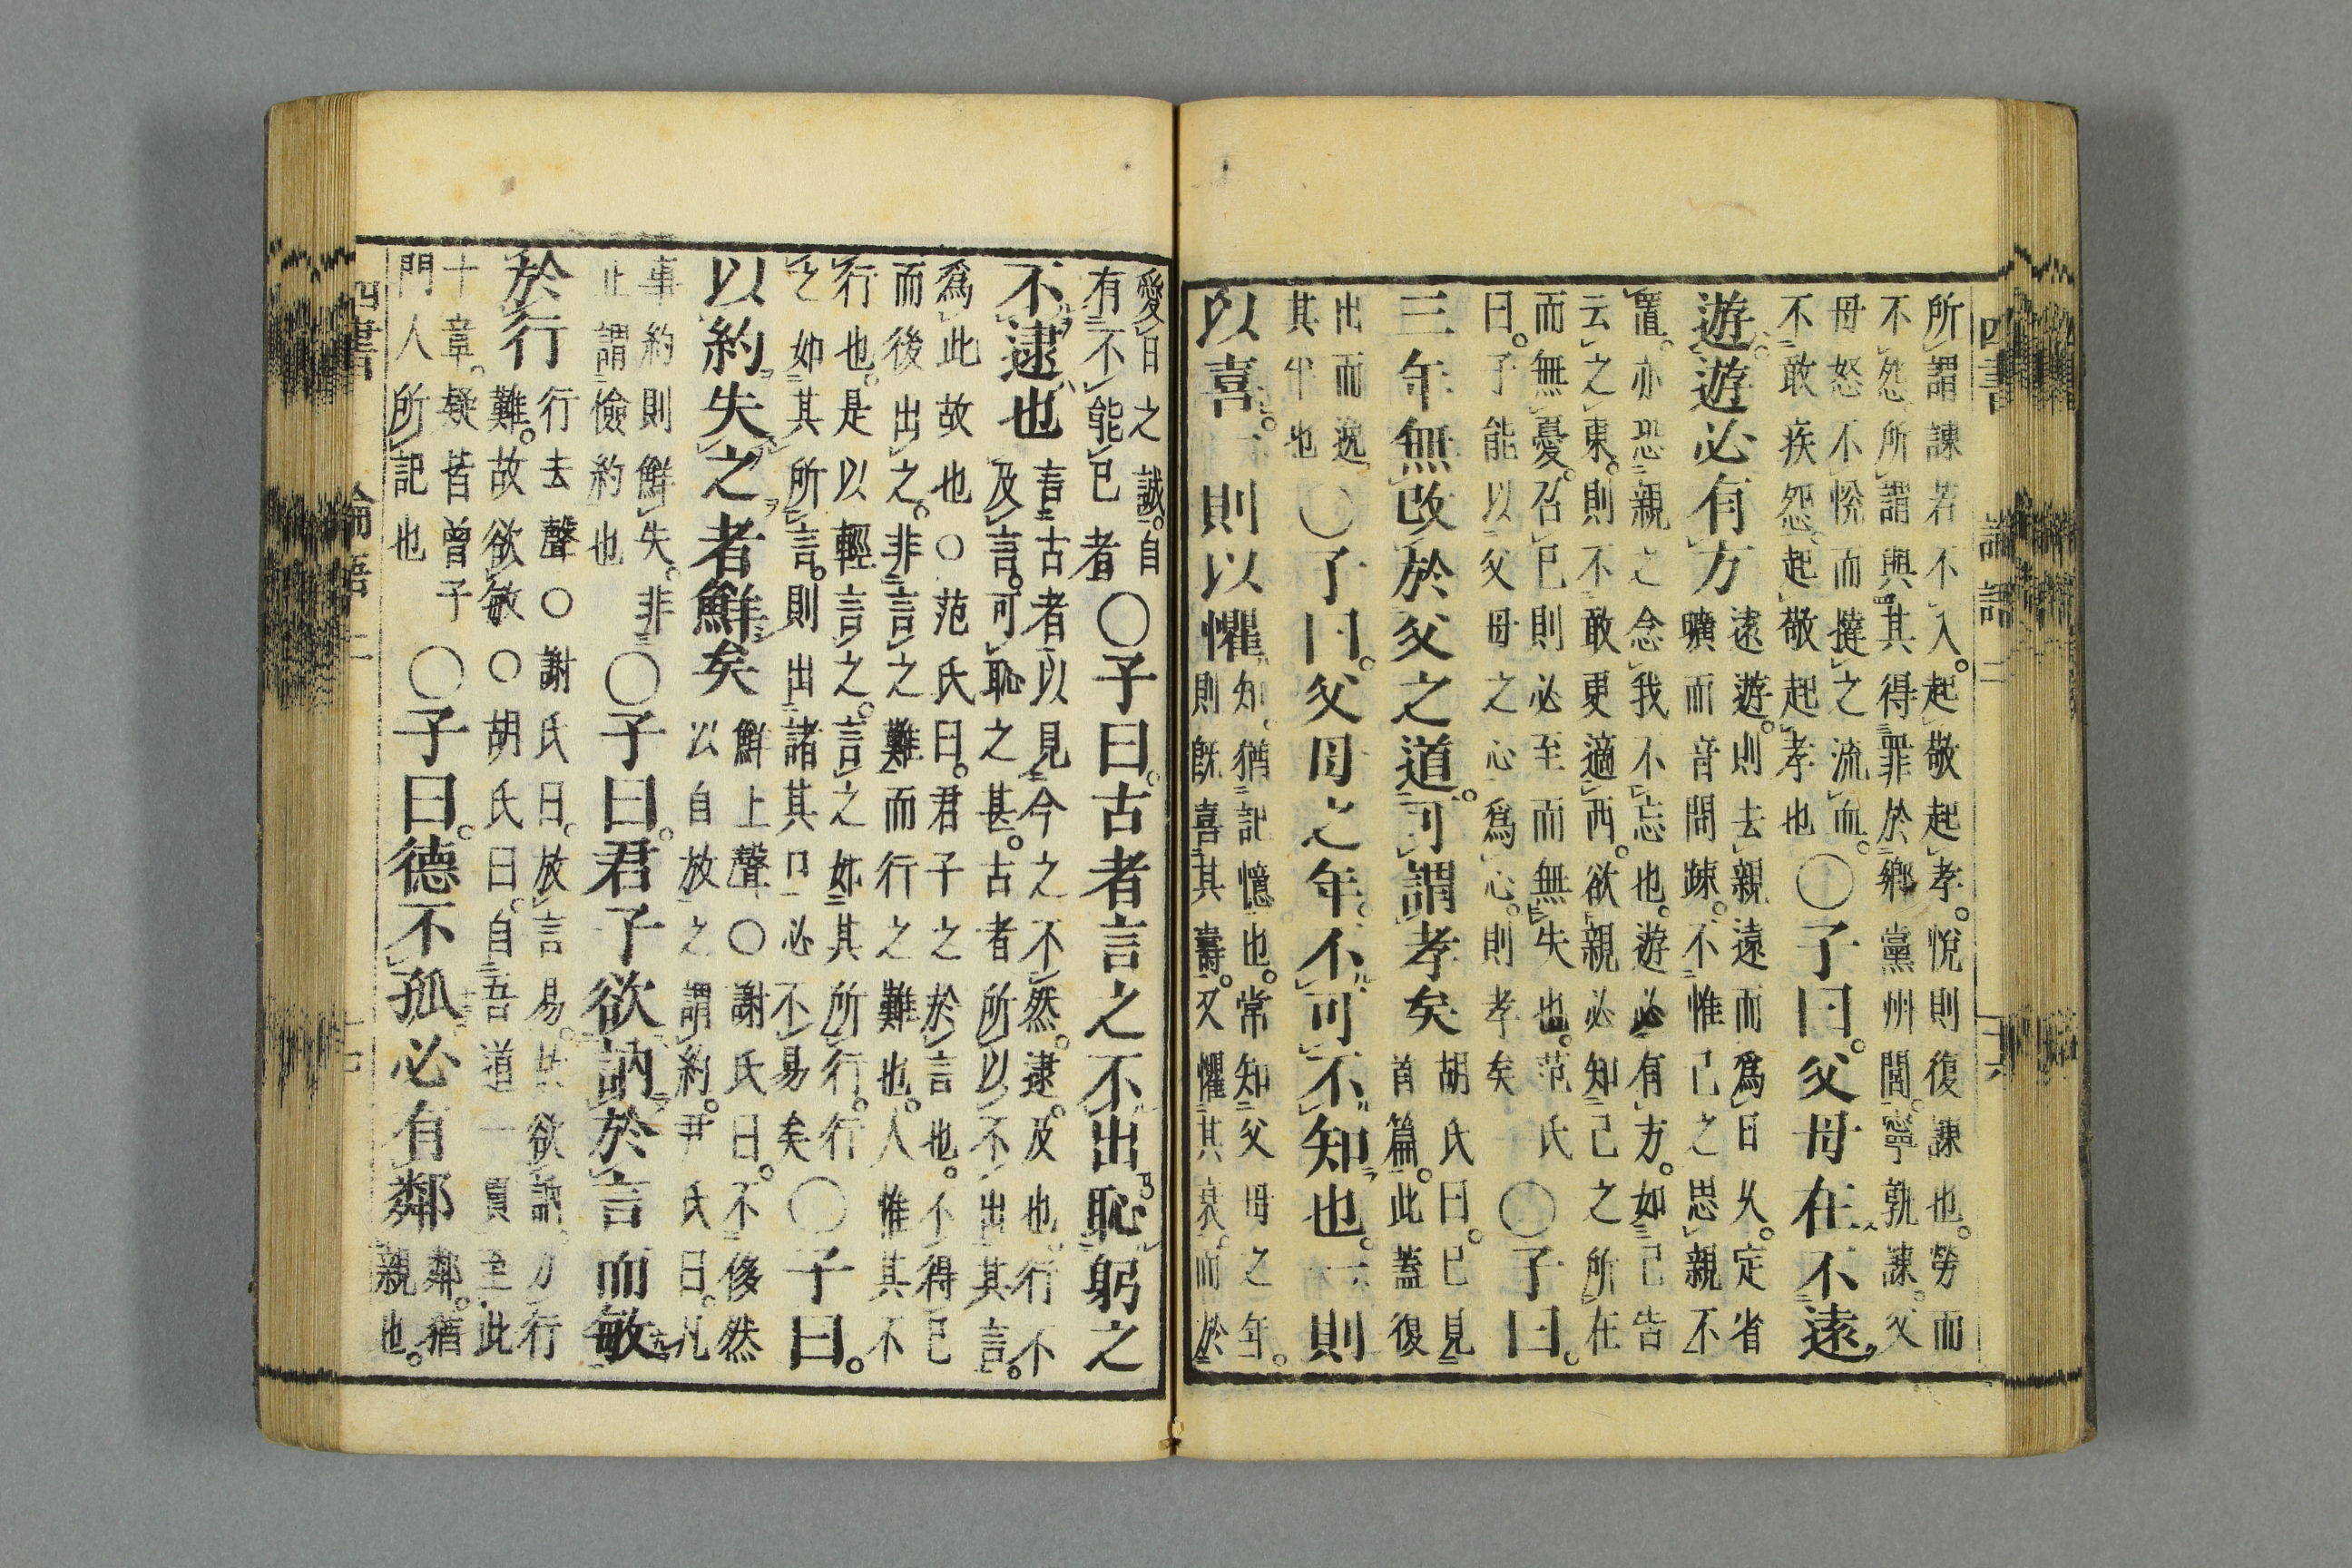 四書 論語 二
所謂諫若不入。起敬起孝。悅則復諫也。勞而
不怨所謂與其得罪於鄉黨州閭。寧孰諫。父
母怒不悅而撻之流血。
不敢疾怨。起敬起孝也
○子曰。父母在不遠
遊。遊必有方
遠遊。則去親遠而爲日久。定省
曠而音問疎。不惟己之思親不
置。亦恐親之念我不忘也。遊必有方。如己告
云之東。則不敢更適西。欲親必知己之所在
而無憂。召己則必至而無失也。范氏
曰。子能以父母之心爲心。則孝矣
○子曰。
三年無改於父之道。可謂孝矣
胡氏曰。已見
首篇。此蓋復
出而逸
其半也
○子曰。父母之年。不可不知也。一則
以喜。一則以懼
知。猶記憶也。常知父母之年。
則既喜其壽。又懼其衰。而於
愛日之誠。自
有不能已者
○子曰。古者言之不出恥躬之
不逮也
言古者以見今之不然。逮。及也。行不
及言。可恥之甚。古者所以不出其言。
爲此故也○范氏曰。君子之於言也。不得已
而後出之。非言之難而行之難也。人惟其不
行也。是以輕言之。言之如其所行。行
之如其所言。則出諸其口必不易矣
○子曰。
以約失之者鮮矣
鮮上聲○謝氏曰。不侈然
以自放之謂約。尹氏曰。凡
事約則鮮失。非
止謂儉約也
○子曰。君子欲訥於言而敏
於行
行去聲○謝氏曰。放言易。故欲訥。力行
難。故欲敏○胡氏曰。自吾道一貫至此
十章。疑皆曾子
門人所記也
○子曰。德不孤必有鄰
鄰。猶
親也。
四書 論語 二